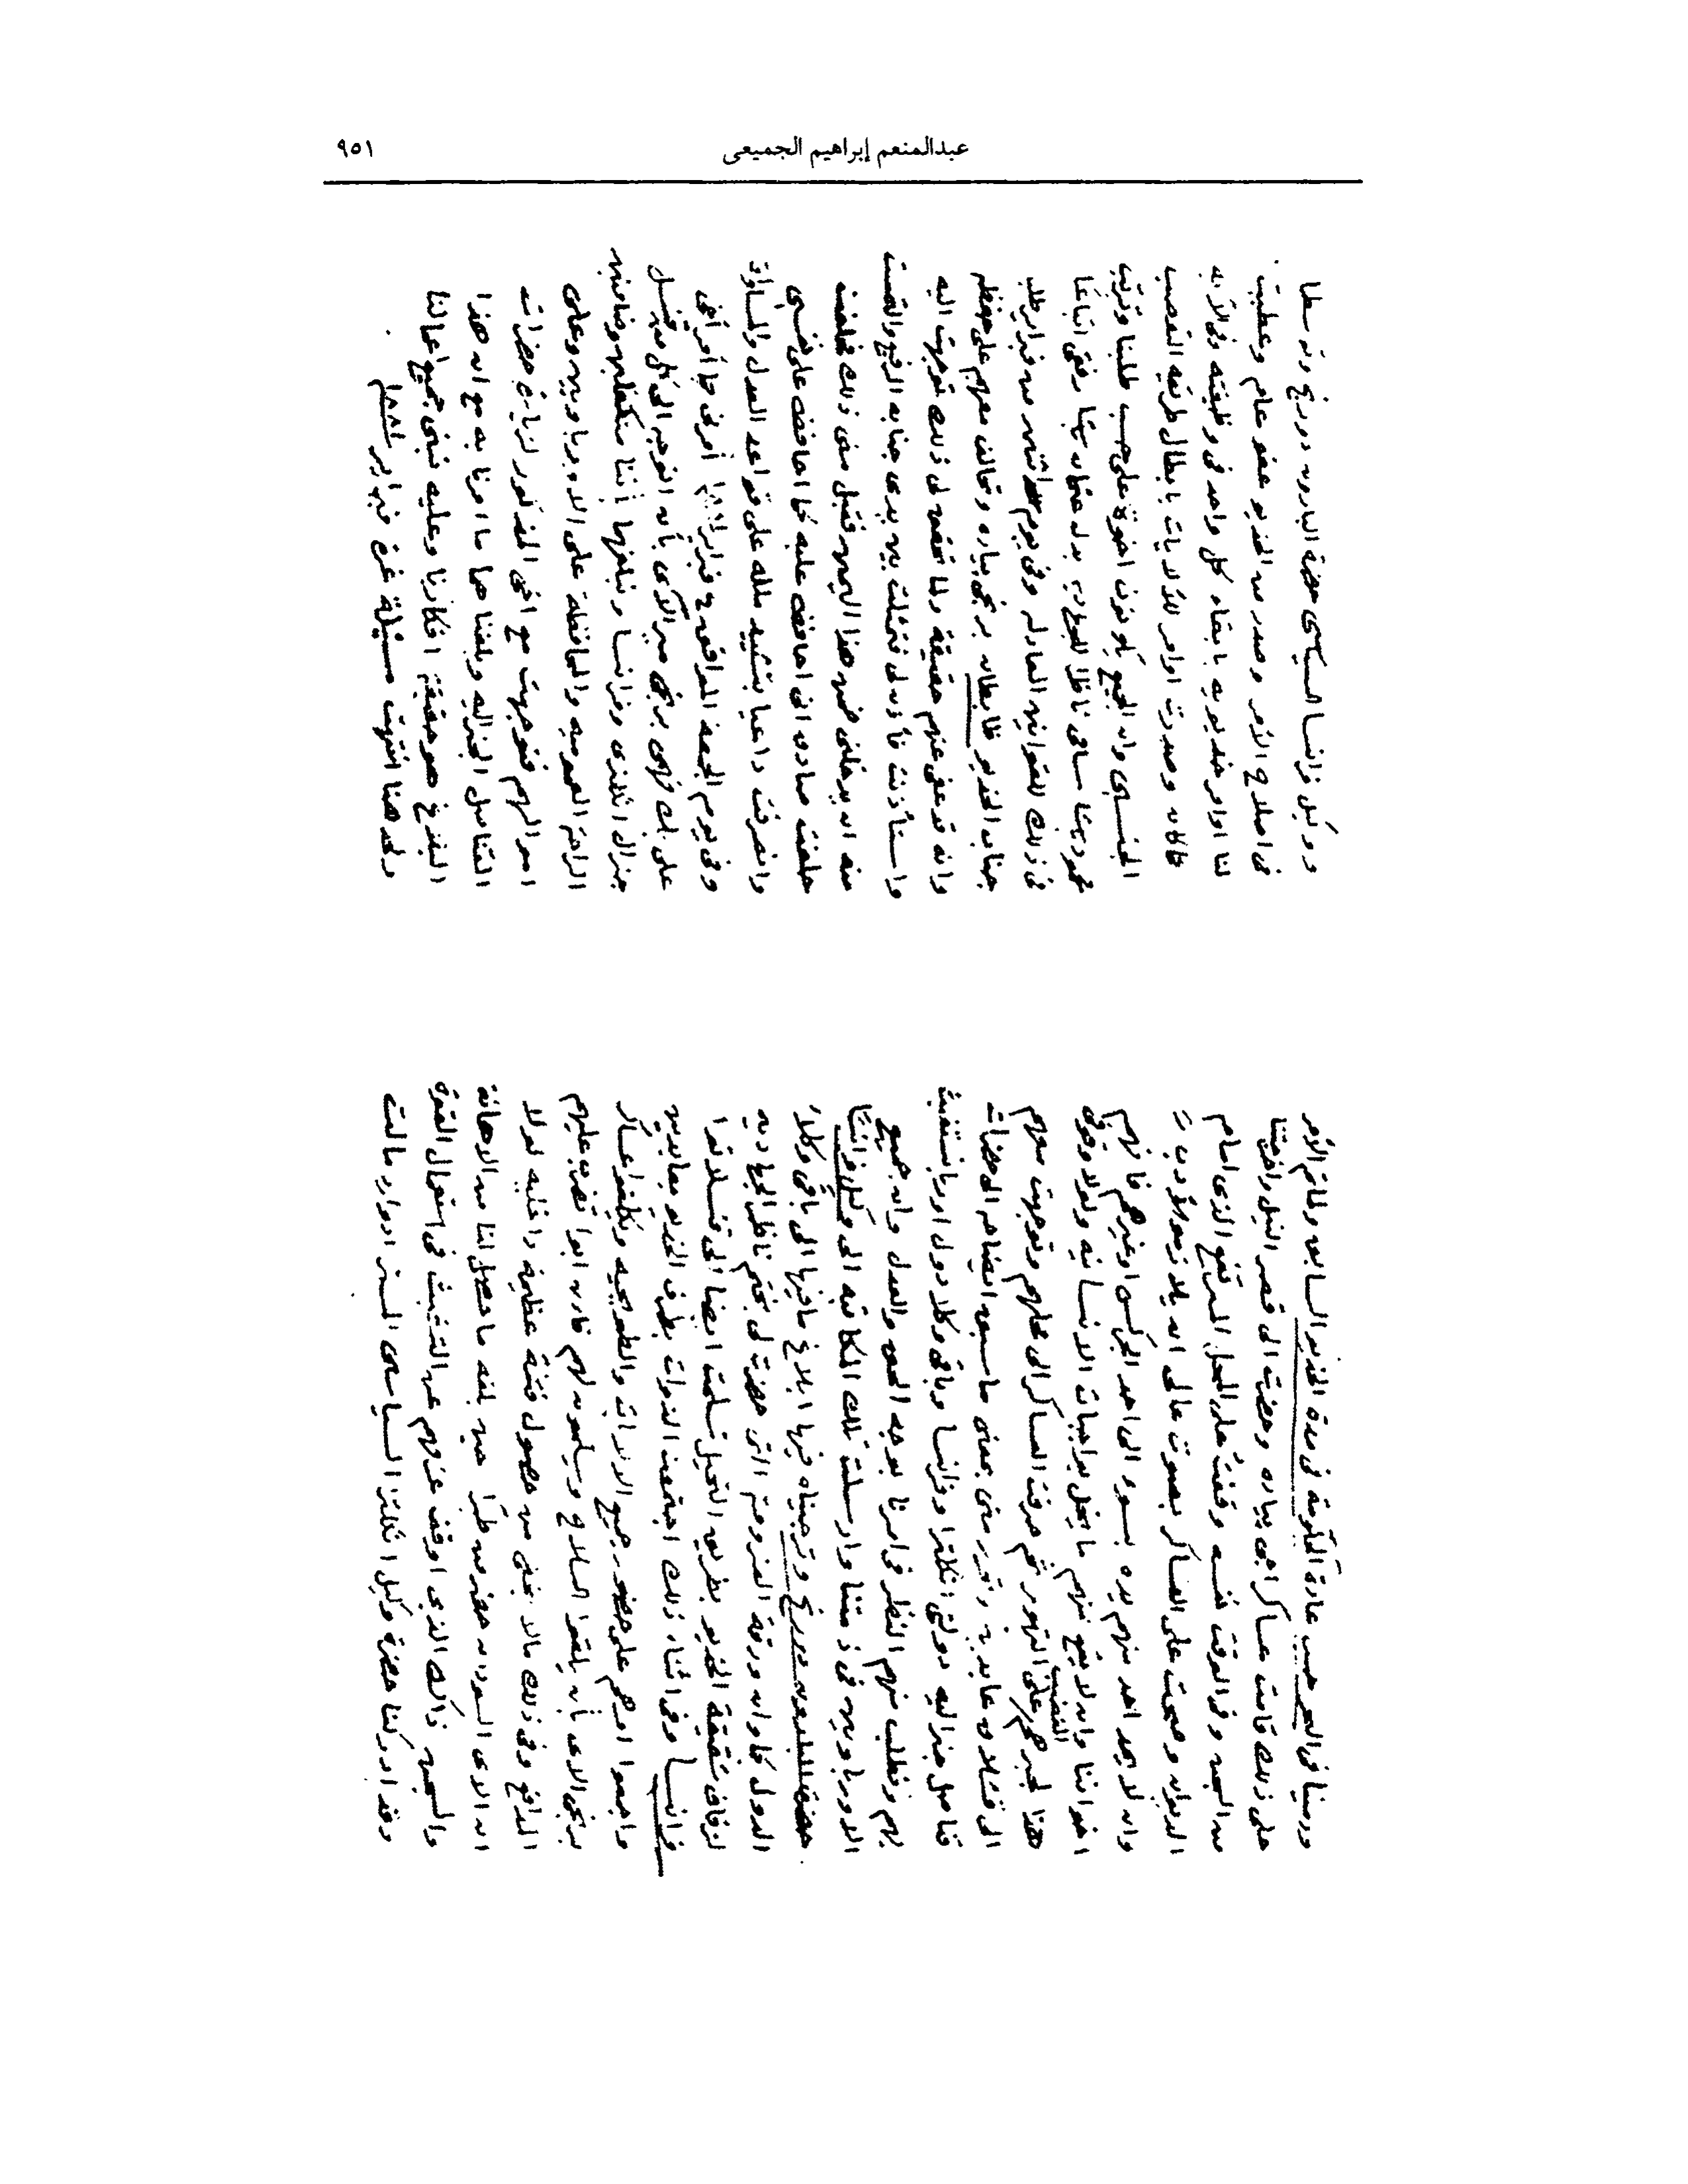 عبدالمنعم إبراهيم الجميعى
٩٥١
ورمينا فى السجن حسب عادة الحكومة فى مدة الخديو السابق ولما تم الأمر
على ذلك قامت عساكر اجى بياده وحضرت الى قصر النيل واخرجتنا
من السجن وفى الوقت نفسه وقفت على المحل المرتفع الذى امام
الديوان وصحت على العساكر بصوت عالى ان يلازموا
وان لا يمد احد منهم يده بسوء الى احد الجركس او غيرهم فانهم
اخواننا وان لا يقع منهم ما يخل بواجبات الانسانيه ولولا وقوفى
هذا لجبرهم الغضب على التهور ثم صرفت العساكر الى محلهم وتوجهت معهم
الى قشلاق عابدين وتحرر منى بمعنى ما سبق ايضاحه الى حضرات
قناصل جنراليه دولتى انكلترا وفرانسا وباقى وكلا دول اوربا نستغيث
بهم ونطلب منهم النظر فى امرنا بوجه الحق والعدل وان جميع
الاورباويين فى ذمتنا وارسلت تلك المكاتبه الى وكيل فرانسا
حضرة البارون دورنج وترجيناه فيها ابلاغ مافيها الى باقى وكلاء
الدول كما وان ورقة العزومة التى حضرت لى بختم ناظر الجهاديه
لزفاف شقيقة الخديو بطريق التحيل تسلمت ايضا الى قنسلاتو
فرانسا وفى اثناء ذلك اجتمعت الذوات بطرف الخديو بعابدين
واجمعوا امرهم على حضور جميع الالايات والطوبجيه ويكلفوا عساكر
برنجى الاى بأن يلقوا السلاح ويسلموه لهم فان ابوا تضرب عليهم
المدافع وفى ذلك مالا يخفى من حصول فتنة عظيمة داخليه لولا
ان الاى السودان حضر من طرا حين بلغه ماحصل لنا من الاهانة
والسجن ذلك الذى اوقف عزمهم عن التشبث فى استعمال القوة
وقد ادركنا حضرة وكيل انكلترا السياسى المستر ادوار مالت
ووكيل فرانسا السياسى حضرة البارون دورنج وتوسطا
فى اصلاح الأمر وصدر من الخديو عفو عام وعطيت
لنا اوامر خديويه بابقاء كل واحد فى وظيفته وفى الآن
كان وصدرت اوامر للالايات بابطال طريقه التعصب
الجنسى وان الجميع يكونون اخوة على حسب طلبنا وترتب
محمود باشا سامى ناظرا للجهاديه بدل عثمان باشا رفقى اتباعًا
فى ذلك للقوانين العادله وفى يوم من فبراير طلب
جناب الخديو ظابطان برنجى بياده وتحالف معهم على حفظهم
وانه قد عفى عنهم حقيقة ولما تحقق لى ذلك توجهت اليه
واستأذنت فأذن لى فتمثلت بين يدى جنابه الرفيع والتمست
منه ان يدخلنى ضمن هذا اليمين فقبل منى ذلك فحلفت
حلفت صادق انى احافظ عليه كما احافظ على نفسى
وانصرفت داعيا بتشييد ملكه على قواعد العدل والمساواة
وفى يوم الجمعة الموافق فبراير أمرنى جا أمر أخى
على بك فهمى برنجى ميرآلاى بأن التوجه الى كل من قنسل
جنرال انكلترى وفرانسا ونبلغهما أننا متكفلين وضامنين
الراحة العموميه والمحافظة على الاورباويين وعلى
اموالهم فتوجهت مع اخى المذكور لزيارة حضرات
القناصل الجنراليه وبلغناهما ما امرنا به مع ان هذا
التبليغ هو حقيقة افكارنا وعليه تبنى جميع اعمالنا
ولحد هنا انتهت مسئلة غرة فبراير ١٨٨١